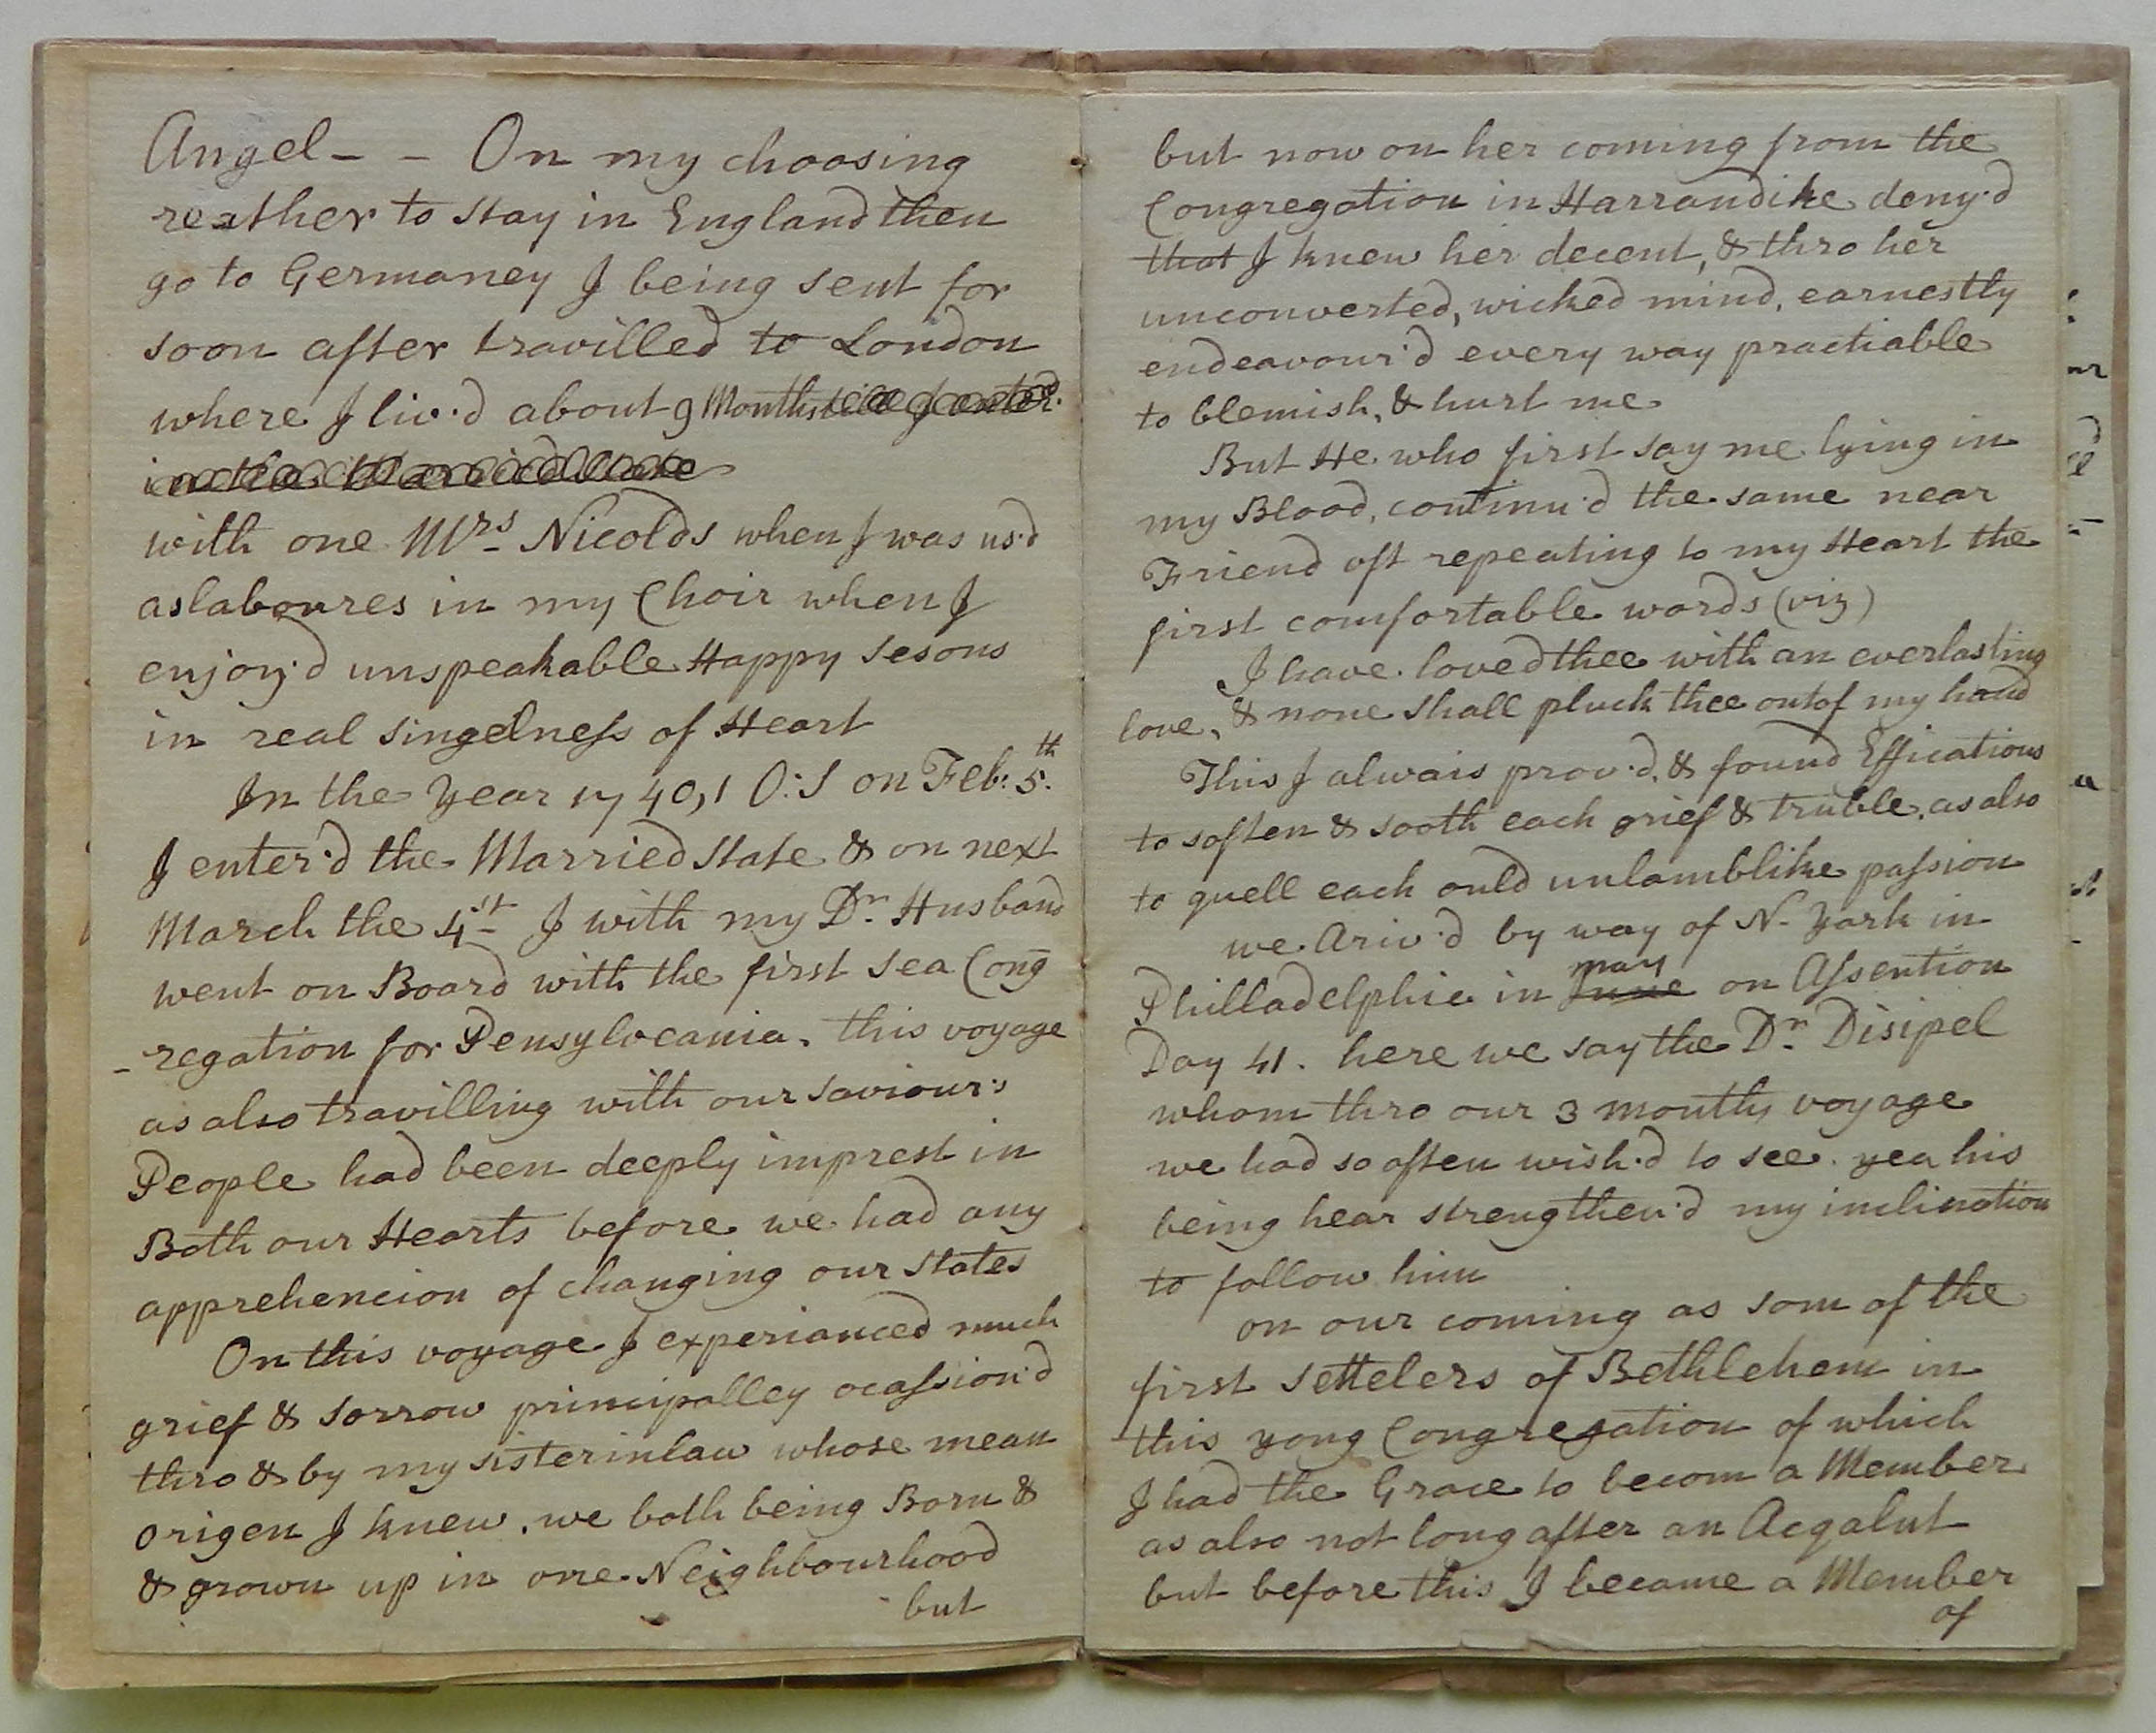 Angel - - On my choosing
reather to stay in England then
go to Germaney I being sent for
soon after travilled to London
where I liv'd about 9 Months till I enter'd
in the Married State
with one Mrs Nicolds when I was us'd
as laboures in my Choir when I
enjoy'd unspeakable Happy Sesons
in real Singelness of Heart
In the Year 1740,1 O:S on Feb: 5.th
I enter'd the Married State & on next
March the 4st I with my Dr. Husband
went on Board with the first Sea Cong
-regation for Pensylveania. this voyage
as also travilling with our Saviour's
People had been deeply imprest in
Both our Hearts before we had any
apprehencion of changing our States
On this voyage I experianced much
grief & sorrow principalley ocassion'd
thro & by my sisterinlaw whose mean
origen I knew. we both being Born &
& grown up in one Neighbourhood
but
but now on her coming from the
Congregation in Harrandike deny'd
that I knew her decent, & thro her
unconverted, wicked mind, earnestly
endeavour'd every way practiable
to blemish, & hurt me
But He who first say me lying in
my Blood, continu'd the same near
Friend oft repeating to my Heart the
first comfortable words (viz)
I have loved thee with an everlasting
love, & none shall pluck thee out of my hand
This I alwais prov'd, & found Efficatious
to soften & sooth each grief & truble, as also
to quell each ould unlamblike passion
we Ariv'd by way of N-York in
may
Philladelphia in June on Assention
Day 41. here we say the Dr. Disipel
whom thro our 3 months voyage
we had so often wish'd to see. yea his
being hear strengthen'd my inclination
to follow him
on our coming as som of the
first settelers of Bethlehem in
this yong Congregation of which
I had the Grace to becom a Member
as also not long after an Acgalut
but before this I became a Member
of